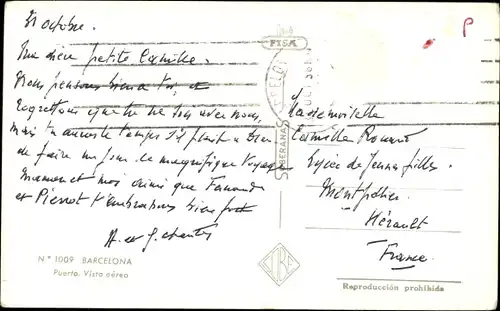 21 octobre.
Ma chère petite Camille.
Nous pensons bien à toi, et
regrettons que tu ne sois avec nous,
Mais tu auras le temps s'il plaît à Dieu
de faire un jour ce magnifique voyage
Maman et moi ainsi que Fernand
et Pierrot t'embrassons bien fort
A. et G.
Nº 1009 BARCELONA
Puerto. Vista aérea
FISA
SOBERANAS
Mademoiselle
Camille
Lycée de Jeunes filles.
Montpellier
Hérault
France.
Reproducción prohibida
P